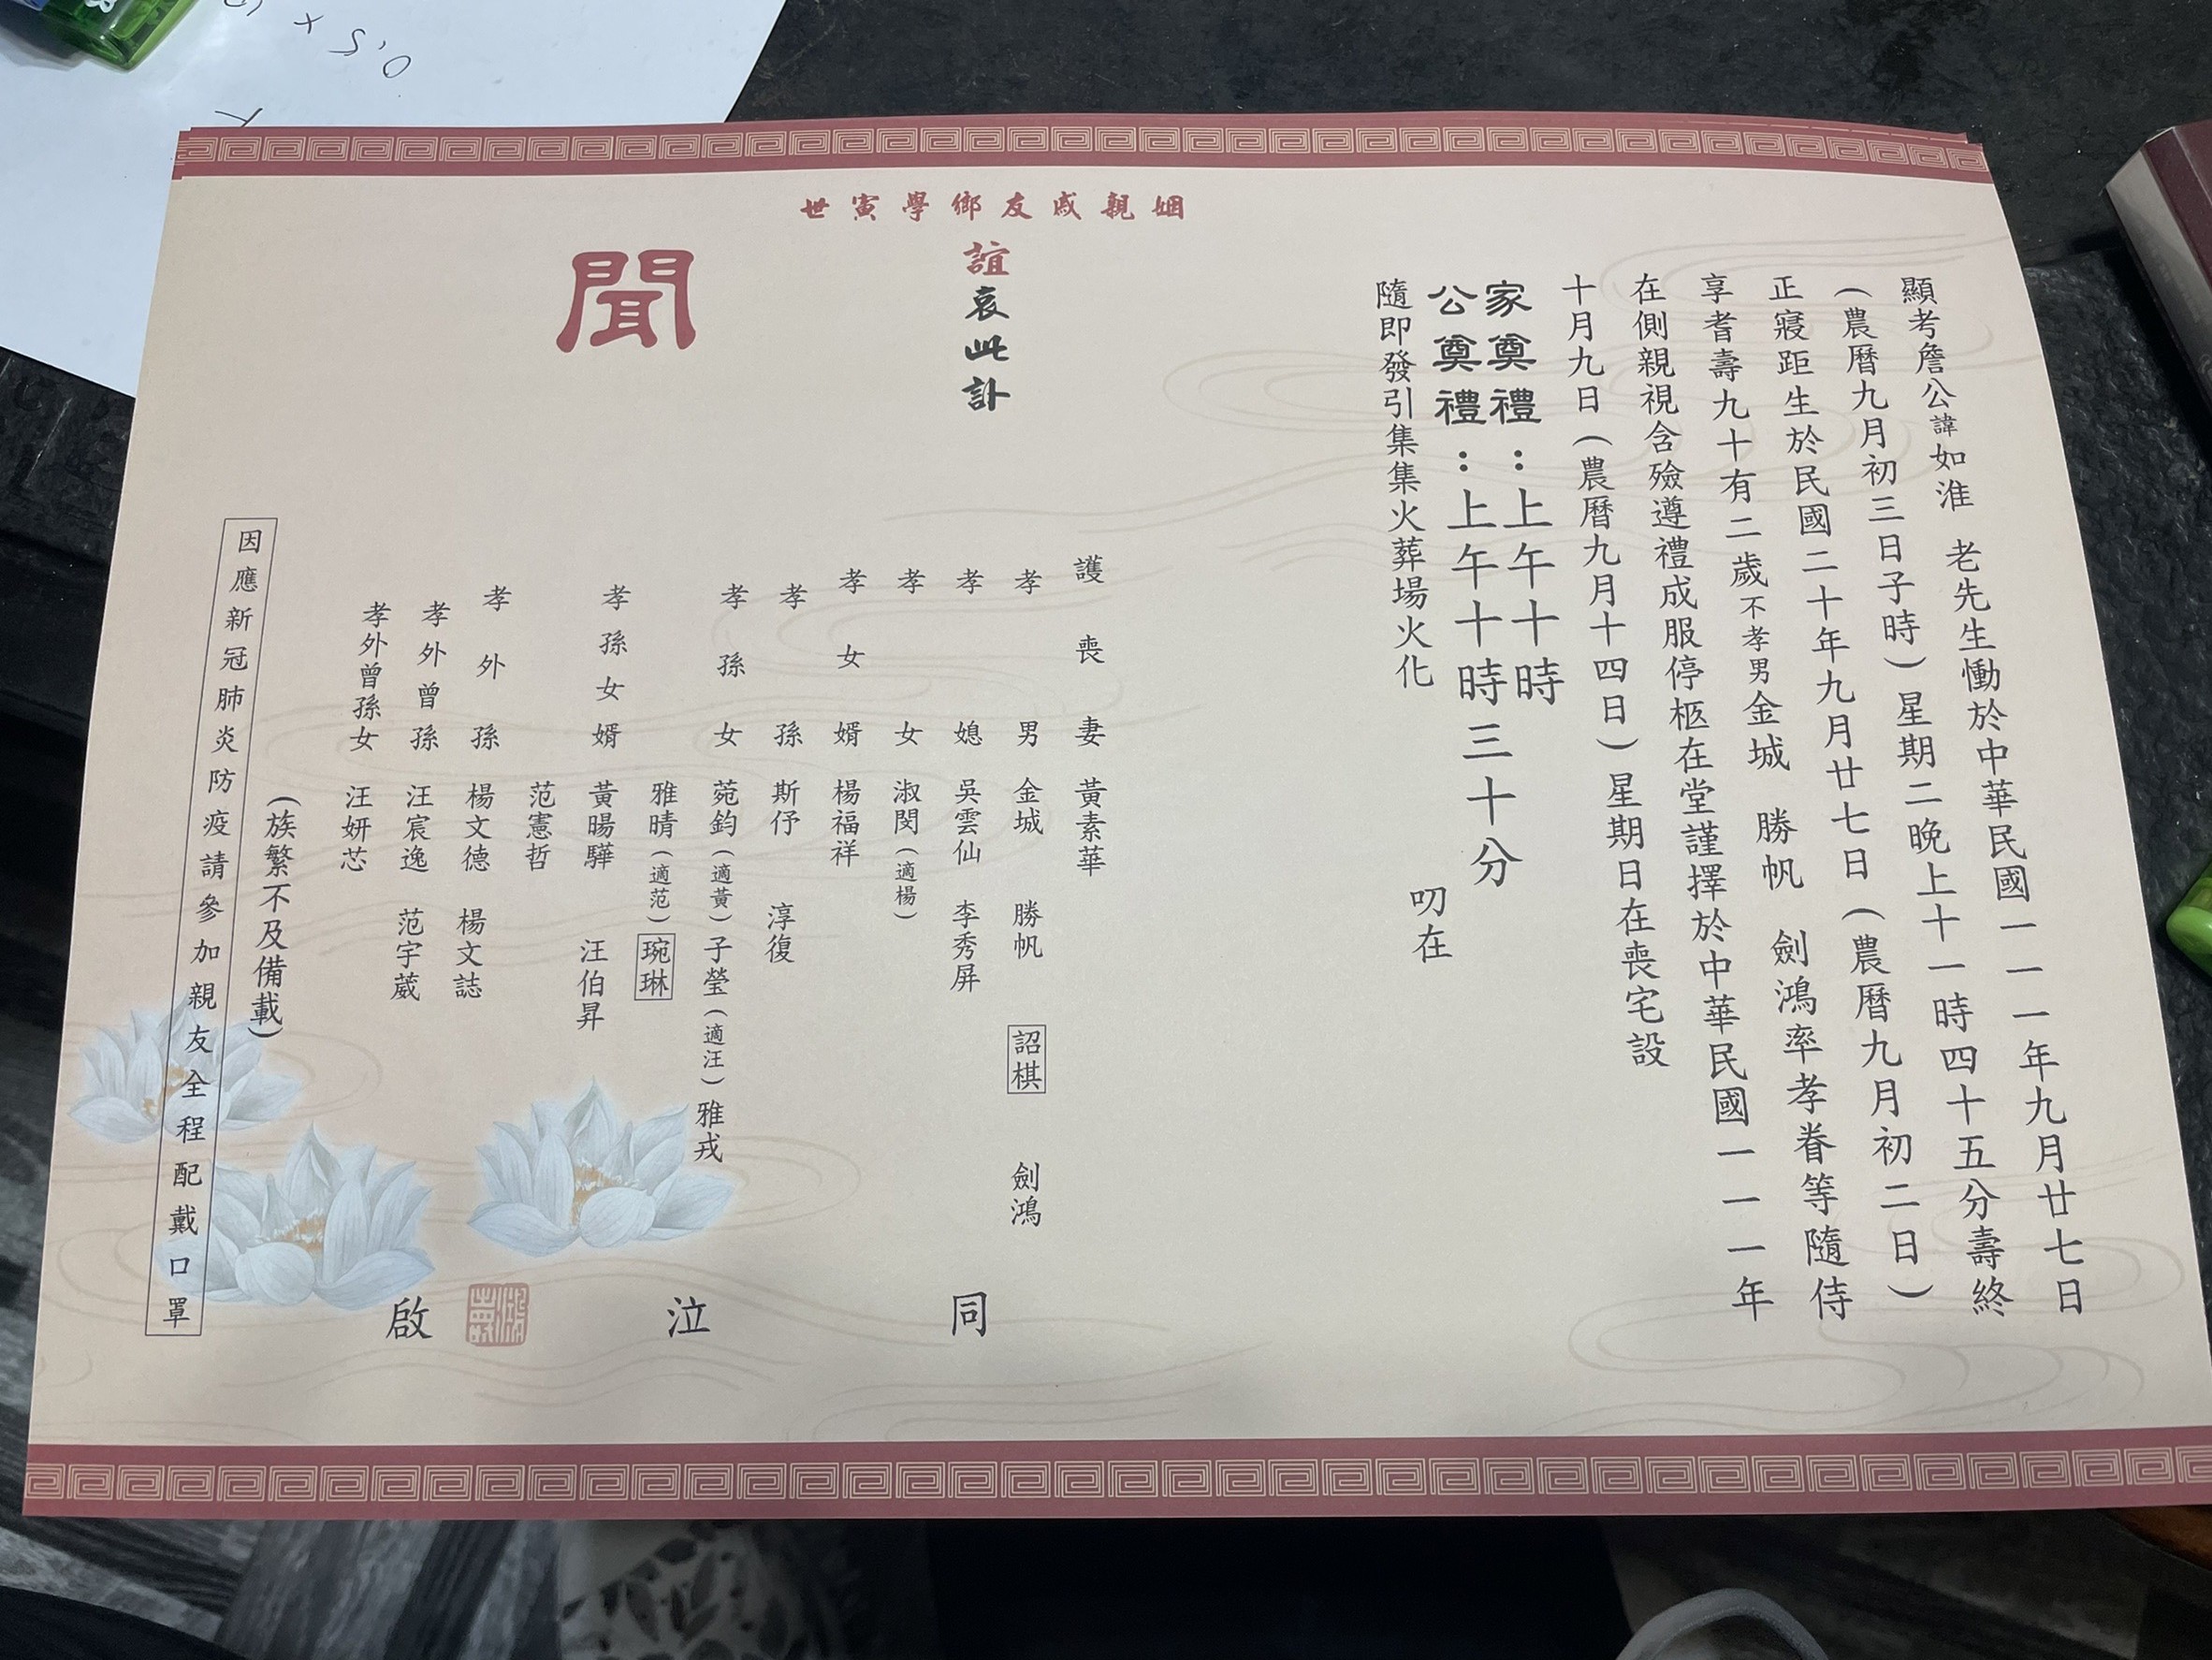 顯考詹公諱如淮 老先生慟於中華民國一一一年九月廿七日
(農曆九月初三日子時)星期二晚上十一時四十五分壽終
正寢距生於民國二十年九月廿七日(農曆九月初二日)
享耆壽九十有二歲不孝男金城 勝帆 劍鴻率孝眷等隨侍
在側親視含殮遵禮成服停柩在堂謹擇於中華民國一一一年
十月九日(農曆九月十四日)星期日在喪宅設
家奠禮:上午十時
公奠禮:上午十時三十分
隨即發引集集火葬場火化
叨在
姻親戚友鄉學寅世
誼哀此訃
聞
護喪妻 黃素華
孝男 金城 勝帆 詔棋 劍鴻
孝媳 吳雲仙 李秀屏
孝女 淑閔(適楊)
孝女婿 楊福祥
孝孫 斯伃 淳復
孝孫女 菀鈞(適黃)子瑩(適汪)雅戎
雅晴(適范)琬琳
孝孫女婿 黃暘驊 汪伯昇
范憲哲
孝外孫 楊文德 楊文誌
孝外曾孫 汪宸逸 范宇葳
孝外曾孫女 汪妍芯
(族繁不及備載)
同泣啟
因應新冠肺炎防疫請參加親友全程配戴口罩
0.5 x